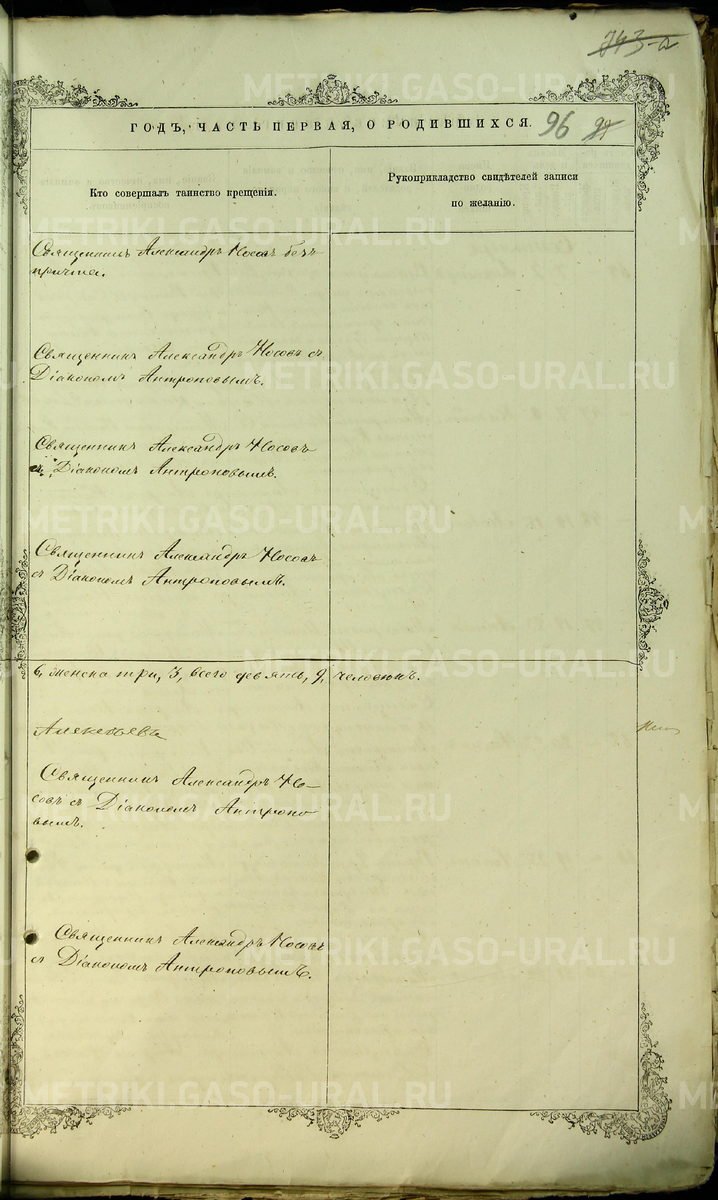 243-а
ГОДЪ, ЧАСТЬ ПЕРВАЯ, О РОДИВШИХСЯ. 96
Кто совершалъ таинство крещенія.
Рукоприкладство свидѣтелей записи
по желанію.
Священникъ Александръ Носовъ безъ
причта.
Священникъ Александръ Носовъ съ
Діакономъ Антроповымъ.
Священникъ Александръ Носовъ
съ Діакономъ Антроповымъ.
Священникъ Александръ Носовъ
съ Діакономъ Антроповымъ.
6, женска три, 3, всего девять, 9, человѣкъ.
Священникъ Александръ Но-
совъ съ Діакономъ Антропо
вымъ.
Священникъ Александръ Носовъ
съ Діакономъ Антроповымъ.
METRIKI.GASO-URAL.RU